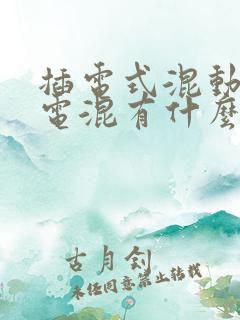 插電式混動
電混有什麼
古月釗
未經同意禁止轉載